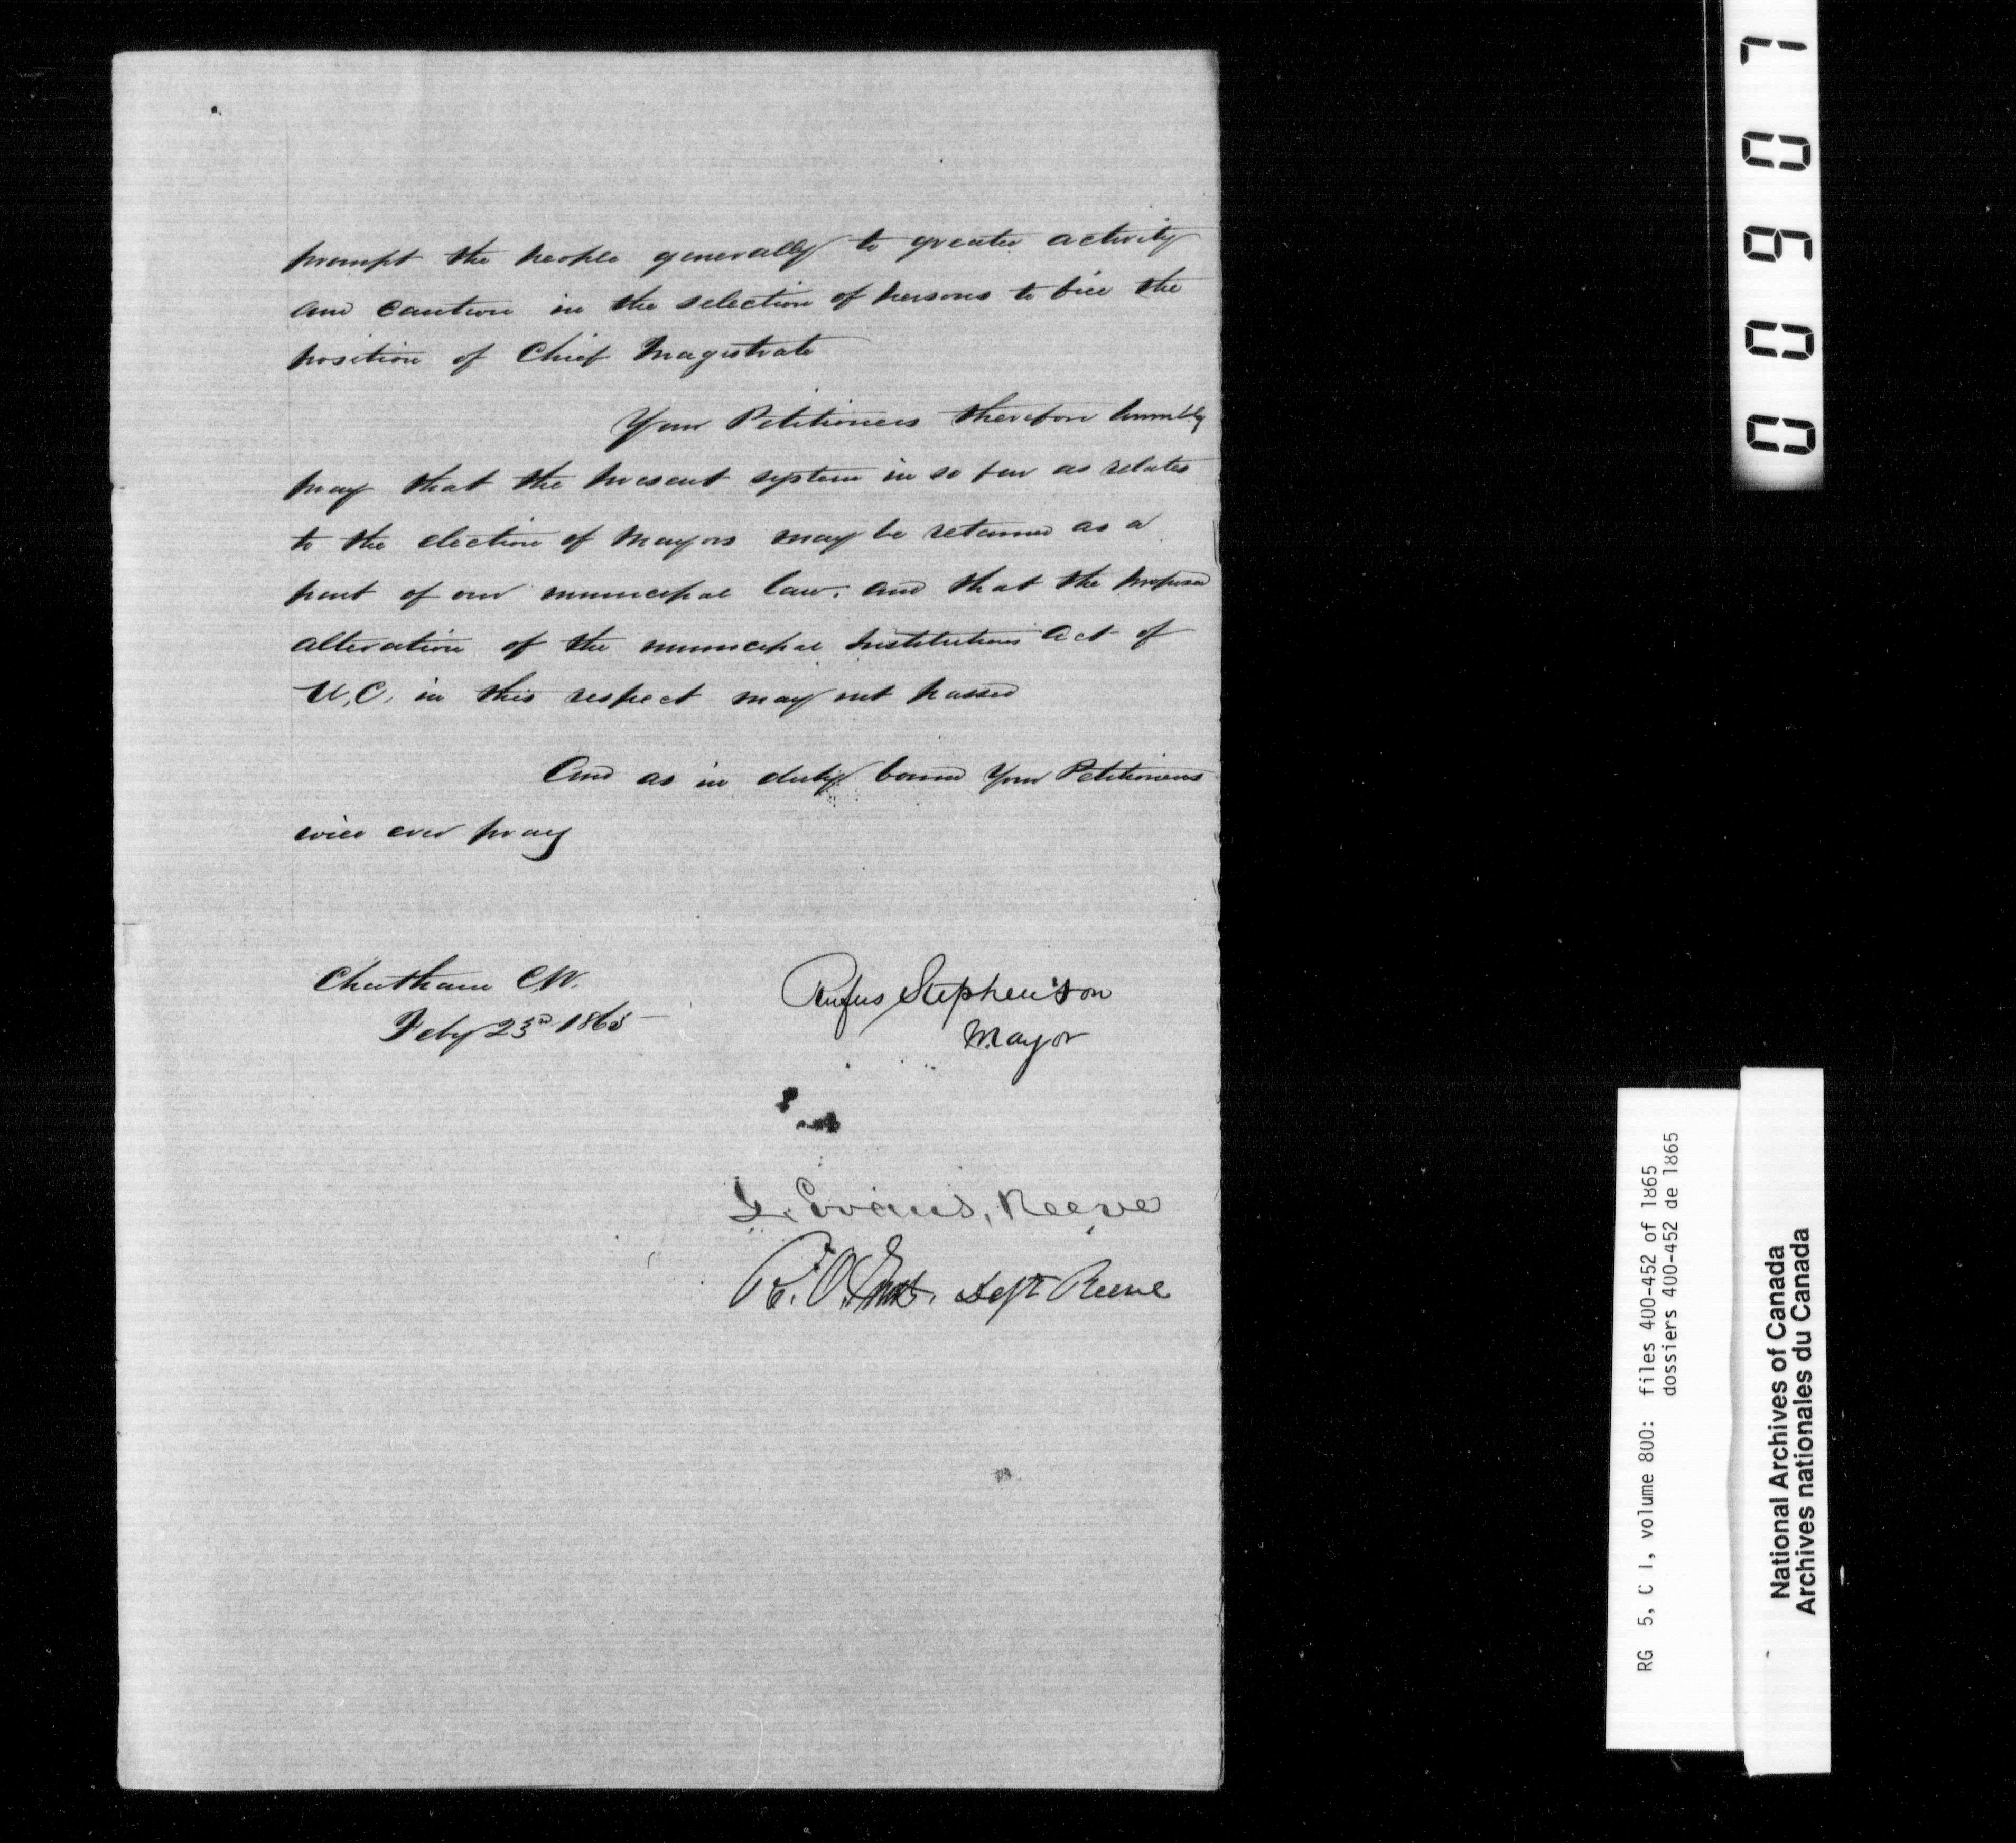 prompt the people generally to greater activity
and caution in the selection of persons to fill the
position of Chief Magistrate
Your Petitioners therefore humbly
pray that the present system in so far as relates
to the election of Mayors may be retained as a
part of our municipal law. and that the proposed
alteration of the municipal Institutions Act of
U.C. in this respect may not passed
And as in duty bound Your Petitioners
will ever pray
Chatham C.W.
Feby 23rd 1865
Rufus Stephenson
Mayor
Evans, Reeve
R.O. Dept Reeve
00907
RG 5, C 1, volume 800: files 400-452 of 1865
dossiers 400-452 de 1865
National Archives of Canada
Archives nationales du Canada